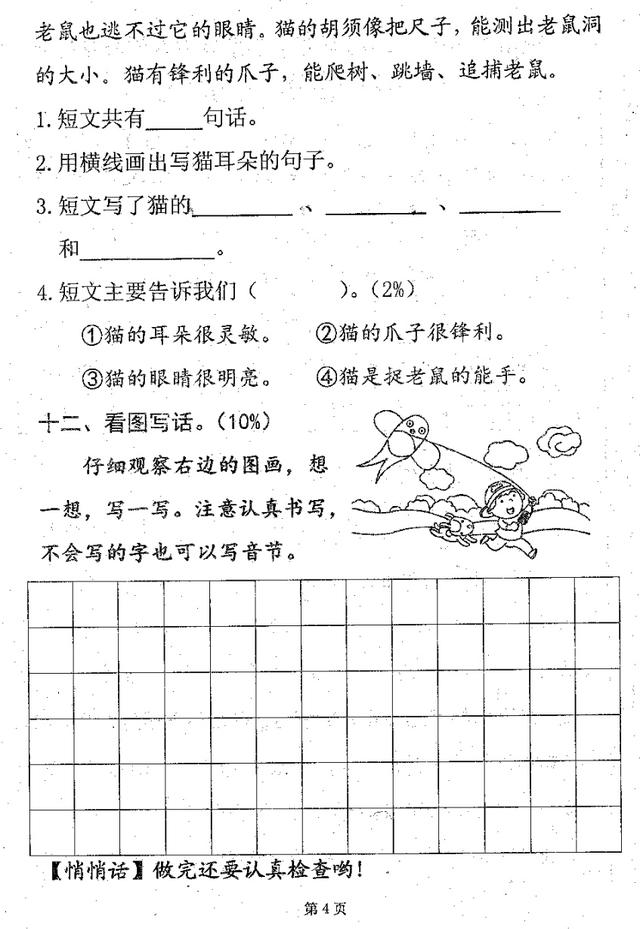 老鼠也逃不过它的眼睛。猫的胡须像把尺子，能测出老鼠洞
的大小。猫有锋利的爪子，能爬树、跳墙、追捕老鼠。
1.短文共有_____句话。
2.用横线画出写猫耳朵的句子。
3.短文写了猫的_________、_________、_________
和____________。
4.短文主要告诉我们（　　　）。（2%）
①猫的耳朵很灵敏。　②猫的爪子很锋利。
③猫的眼睛很明亮。　④猫是捉老鼠的能手。
十二、看图写话。（10%）
仔细观察右边的图画，想
一想，写一写。注意认真书写，
不会写的字也可以写音节。
【悄悄话】做完还要认真检查哟！
第4页